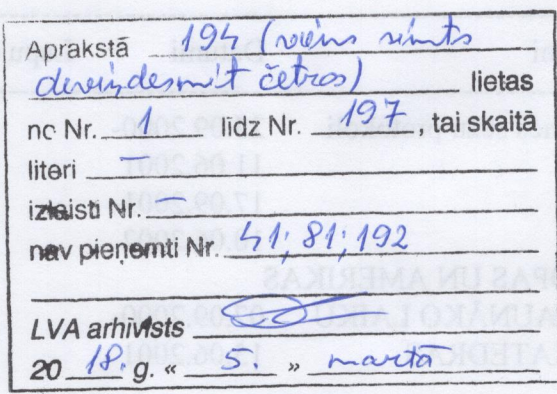 Aprakstā 194 (viens simts
deviņdesmit četras) lietas
no Nr. 1 līdz Nr. 197, tai skaitā
literi –
izlaisti Nr. –
nav pieņemti Nr. 41; 81; 192
LVA arhīvists
20 18. g. « 5. » martā